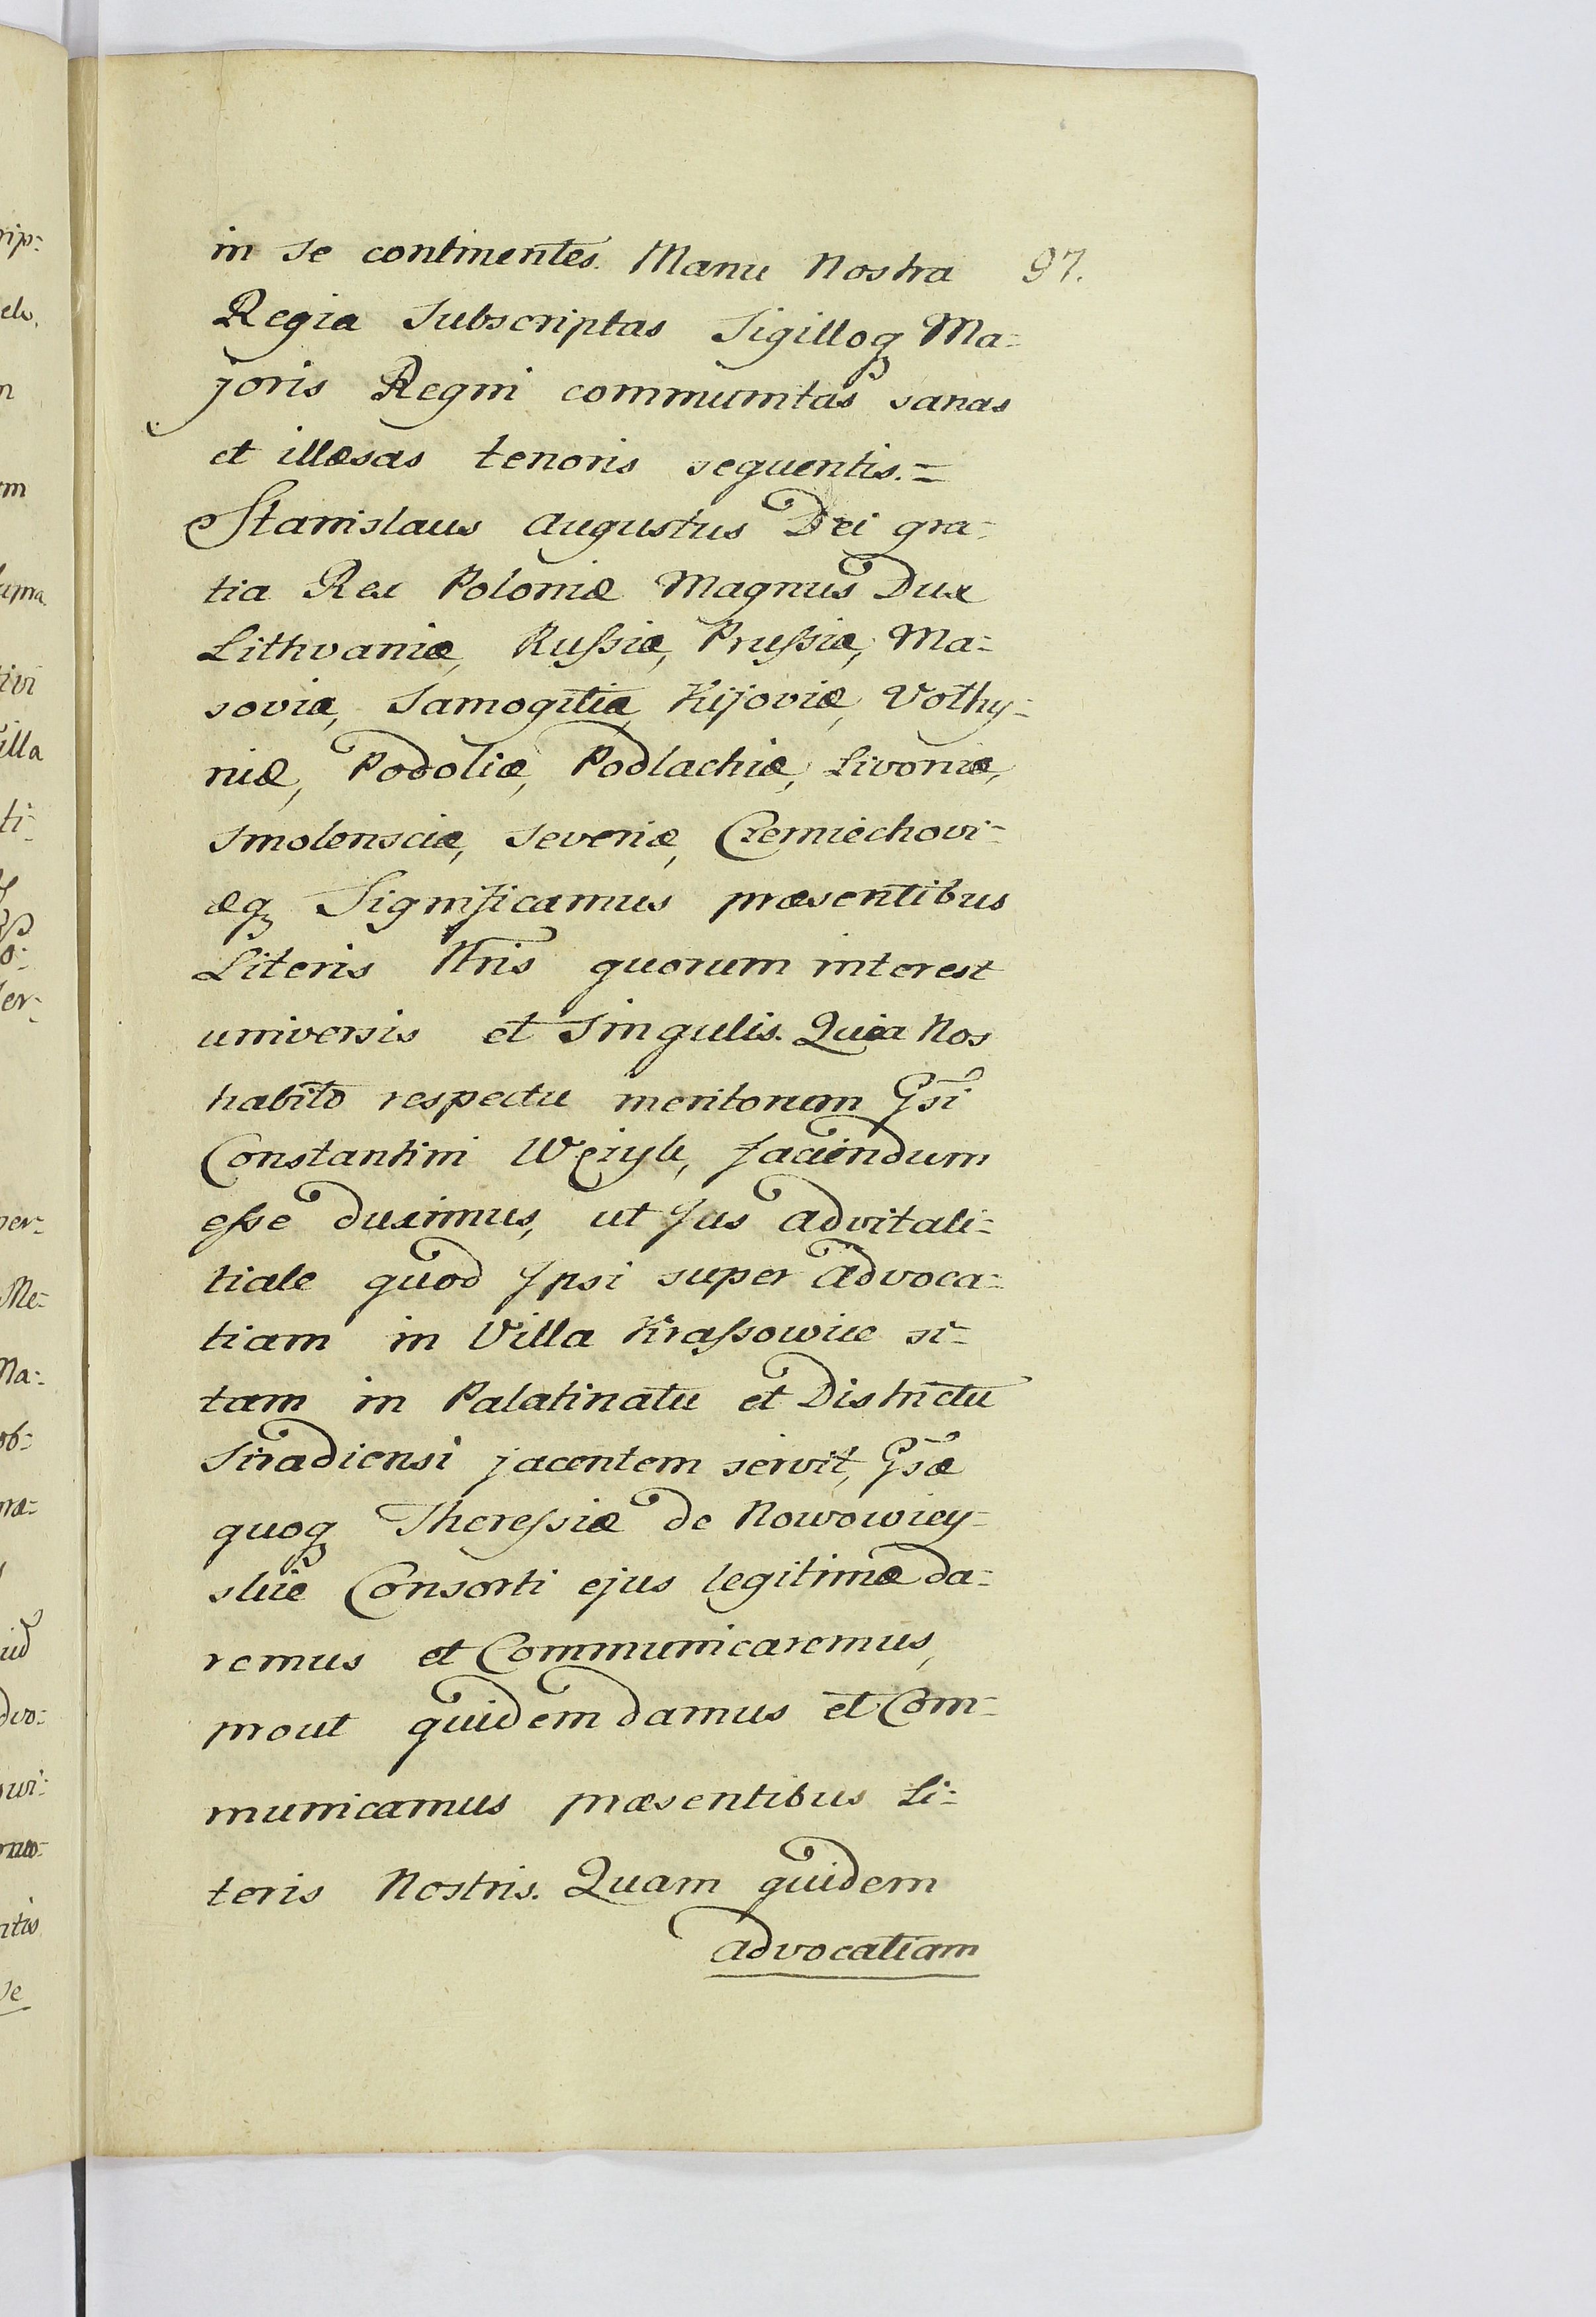 in se continentes. Manu Nostra 97.
Regia Subscriptas Sigilloq Ma=
joris Regni communitas sanas
et illæsas tenoris sequentis.=
Stanislaus Augustus Dei gra=
tia Rex Poloniæ Magnus Dux
Lithvaniæ, Rußiæ, Prußiæ, Ma=
soviæ, Samogitiæ, Kijoviæ, Volhy=
niæ, Podoliæ, Podlachiæ, Livoniæ,
Smolensciæ, Severiæ, Czerniechovi=
æq Significamus præsentibus
Literis Nris quorum interest
universis et Singulis. Quia Nos
habito respectu meritorum Gsi
Constantini faciendum
eße duximus, ut Jus advitali=
tiale quod Ipsi super advoca=
tiam in Villa Kraßowice si=
tam in Palatinatu et Districtu
Siradiensi jacentem servit, Gsæ
quoq Thereßiæ de Nowowiey=
skie Consorti ejus legitimæ da=
remus et Communicaremus,
prout quidem damus et Com=
municamus præsentibus Li=
teris Nostris. Quam quidem
advocatiam
rip=
m
illa
ti=
o=
er=
Me=
Na=
ob=